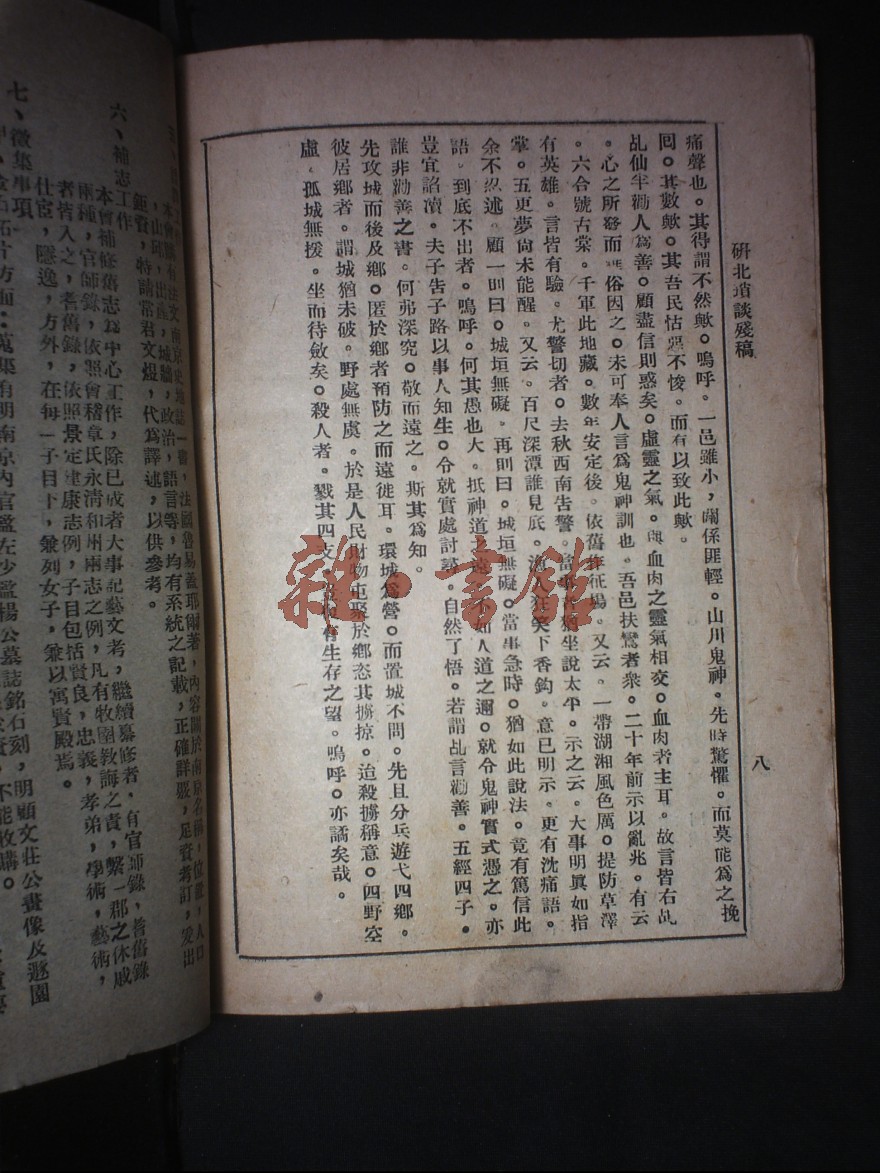 研北瑣談殘稿
八
痛聲也。其得謂不然歟。嗚呼。一邑雖小。關係匪輕。山川鬼神。先時驚懼。而莫能為之挽
回。其數歟。其吾民怙惡不悛。而有以致此歟。
乩仙半勸人為善。顧盡信則惑矣。虛靈之氣。與血肉之靈氣相交。血肉者主耳。故言皆右乩
。心之所發而 俗因之。未可奉人言為鬼神訓也。吾邑扶鸞者衆。二十年前示以亂兆。有云
。六合號古棠。千軍此地藏。數年安定後。依舊作征場。又云。一帶湖湘風色厲。提防草澤
有英雄。言皆有驗。尤警切者。去秋西南告警。當事者猶坐說太平。示之云。大事明眞如指
掌。五更夢尙未能醒。又云。百尺深潭誰見底。漁人狂笑下香鈎。意已明示。更有沈痛語。
余不忍述。顧一則曰。城垣無礙。再則曰。城垣無礙。當事急時。猶如此說法。竟有篤信此
語。到底不出者。嗚呼。何其愚也大。抵神道之遠。不如人道之邇。就令鬼神實式憑之。亦
豈宜諂瀆。夫子告子路以事人知生。令就實處討尋。自然了悟。若謂乩言勸善。五經四子。
誰非勸善之書。何弗深究。敬而遠之。斯其為知。
先攻城而後及鄉。匿於鄉者預防之而遠徙耳。環城為營。而置城不問。先且分兵遊弋四鄉。
彼居鄉者。謂城猶未破。野處無虞。於是人民財物屯聚於鄉恣其擄掠。迨殺擄稱意。四野空
虛。孤城無援。坐而待斂矣。殺人者。戮其四支。 有生存之望。嗚呼。亦譎矣哉。
雜·書館
鉅資，特請常君文煜，代為譯述，以供參考。
六、補志工作
本會補修舊志為中心工作，除已成者大事記藝文考，繼續纂修者，有官師錄，耆舊錄
兩種，官師錄，依照會稽章氏永清和州兩志之例，凡有牧圉敎誨之責，繫一郡之休戚
者皆入之，耆舊錄，依照景定建康志例，子目包括賢良，忠義，孝弟，學術，藝術，
仕宦，隱逸，方外，在每一子目下，兼列女子，兼以寓賢殿焉。
七、徵集事項